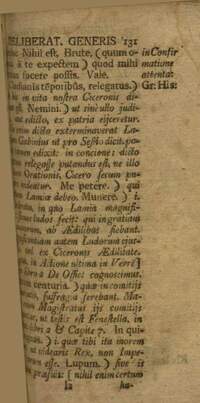 DELIBERAT. GENERIS 131
Nihil est, Brute, (quum o- in Confir
à te expectem) quod mihi matione
facere possis. Vale. attentat
temporibus, relegatus.) Gr: His:
in vita nostra Ciceronis di-
Nemini.) ut iniusto judi-
edicto, ex patria ejiceretur.
cum dicto exterminaverat La-
Gabinius ut pro Sestio dicit.
edixit: in concione: dicto
relegasse putandus est, ne illo
Orationis, Cicero secum pu-
videatur. Me petere.) quò
Lamiæ debeo. Munere.) i.
in quo Lamia magnifi-
ludos fecit: qui in gratiam
ab Ædilibus fiebant.
autem Ludorum ejus-
ex Ciceronis Ædilitate.
in Actione ultima in Verrē]
libro 2 De Offici: cognoscimus.
centuria.) quæ in comitijs
suffragia ferebant. Ma-
Magistratus ijs comitijs
ut testis est Fenestella, in
libri 2 & Capite 7. In qui-
i. quæ tibi ita morem
videaris Rex, non Impe-
esse. Lupum.) sive is
præfuit: [nihil enim certum
Ii ha-